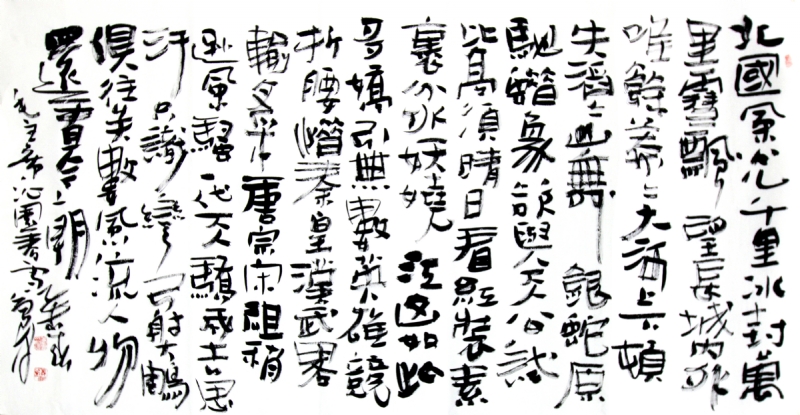 北國風光千里冰封萬
里雪飄望長城內外
唯餘莽々大河上下頓
失滔々山舞銀蛇原
馳蠟象欲與天公試
比高須晴日看紅裝素
裹分外妖嬈江山如此
多嬌引無數英雄競
折腰惜秦皇漢武略
輸文采唐宗宋祖稍
遜風騷一代天驕成吉思
汗只識彎弓射大鵰
俱往矣數風流人物
還看今朝
毛主席沁園春雪